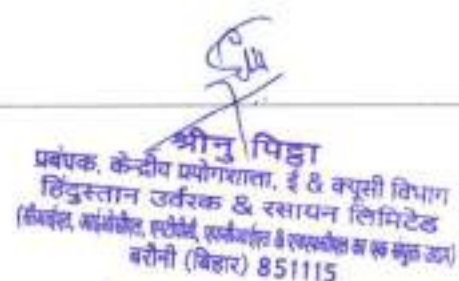 श्रीनु पिट्ठा
प्रबंधक, केन्द्रीय प्रयोगशाला, ई & क्यूसी विभाग
हिंदुस्तान उर्वरक & रसायन लिमिटेड
(सीआईएल, आईओसीएल, एनटीपीसी, एफसीआईएल & एचएफसीएल का एक संयुक्त उद्यम)
बरौनी (बिहार) 851115